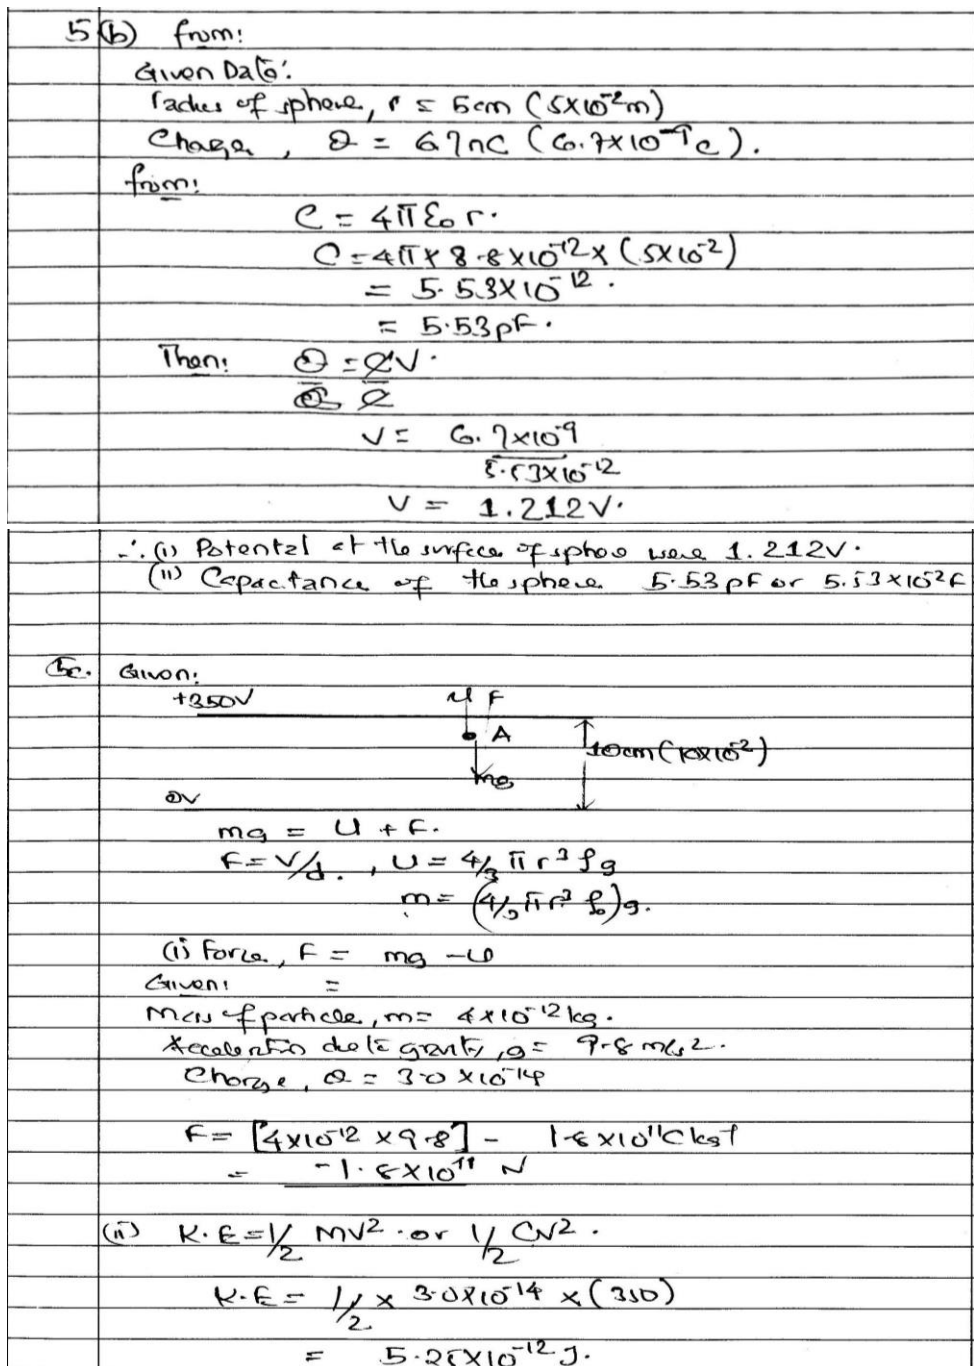 5 (b) from:
Given Data:
radius of sphere, r = 5cm (5x10⁻²m)
Charge, Q = 6.7nC (6.7x10⁻⁹C).
from:
C = 4πε₀r.
C = 4π x 8.8x10⁻¹² x (5x10⁻²)
= 5.53x10⁻¹².
= 5.53pF.
Then: Q = CV.
C
V = 6.7x10⁻⁹
5.53x10⁻¹²
V = 1.212V.
∴ (i) Potential at the surface of sphere were 1.212V.
(ii) Capactance of the sphere 5.53pF or 5.53x10⁻¹²F
5c. Given:
+350V U F
A
10cm (10x10⁻²)
mg
0V
mg = U + F.
F = V/d. , U = 4/3 πr³ρg
m = (4/3 πr³ρ₀)g.
(i) Force, F = mg - U
Given: =
Mass of particle, m = 4x10⁻¹²kg.
Acceleration due to gravity, g = 9.8m/s².
Charge, Q = 3.0x10⁻¹⁴
F = [4x10⁻¹² x 9.8] - 1.8x10¹¹Ckg⁻¹
= -1.8x10¹¹ N
(ii) K.E = 1/2 MV². or 1/2 CV².
K.E = 1/2 x 3.0x10⁻¹⁴ x (350)
= 5.25x10⁻¹² J.